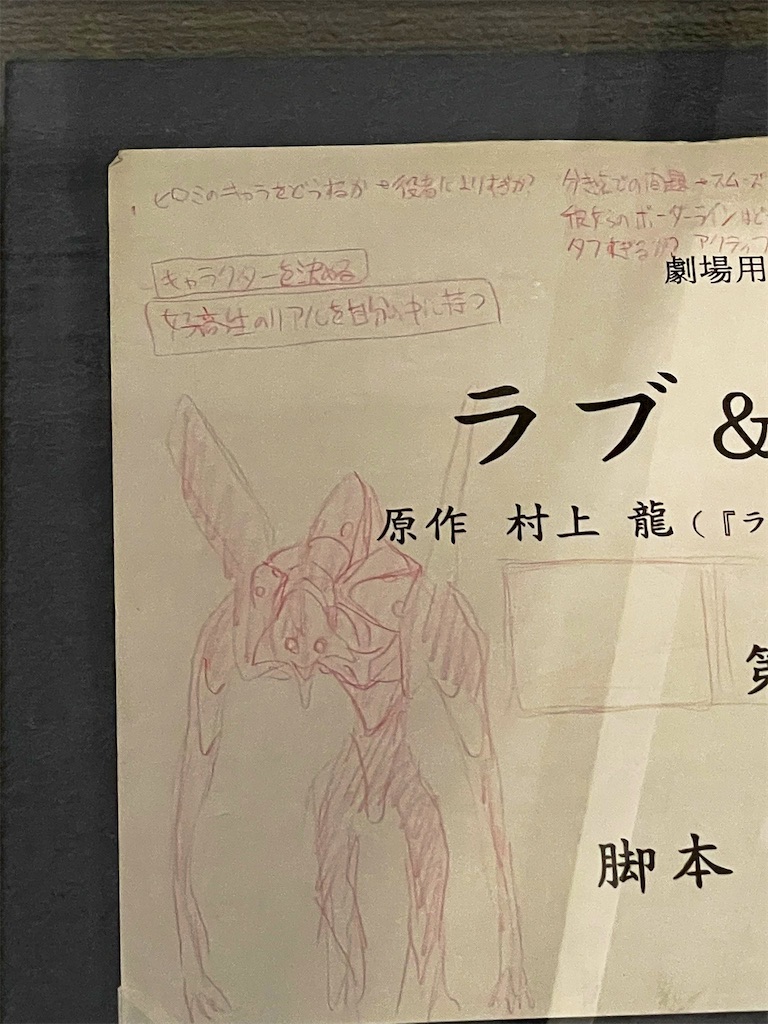 ヒロミのキャラをどうするか→役者によりすぎか?
分岐点での問題→スムーズ
彼女らのボーダーラインはど
タフすぎるか? アクティブ
キャラクターを決める
女子高生のリアルを自分の中に持つ
劇場用
ラブ&
原作 村上 龍(『ラ
第
脚本